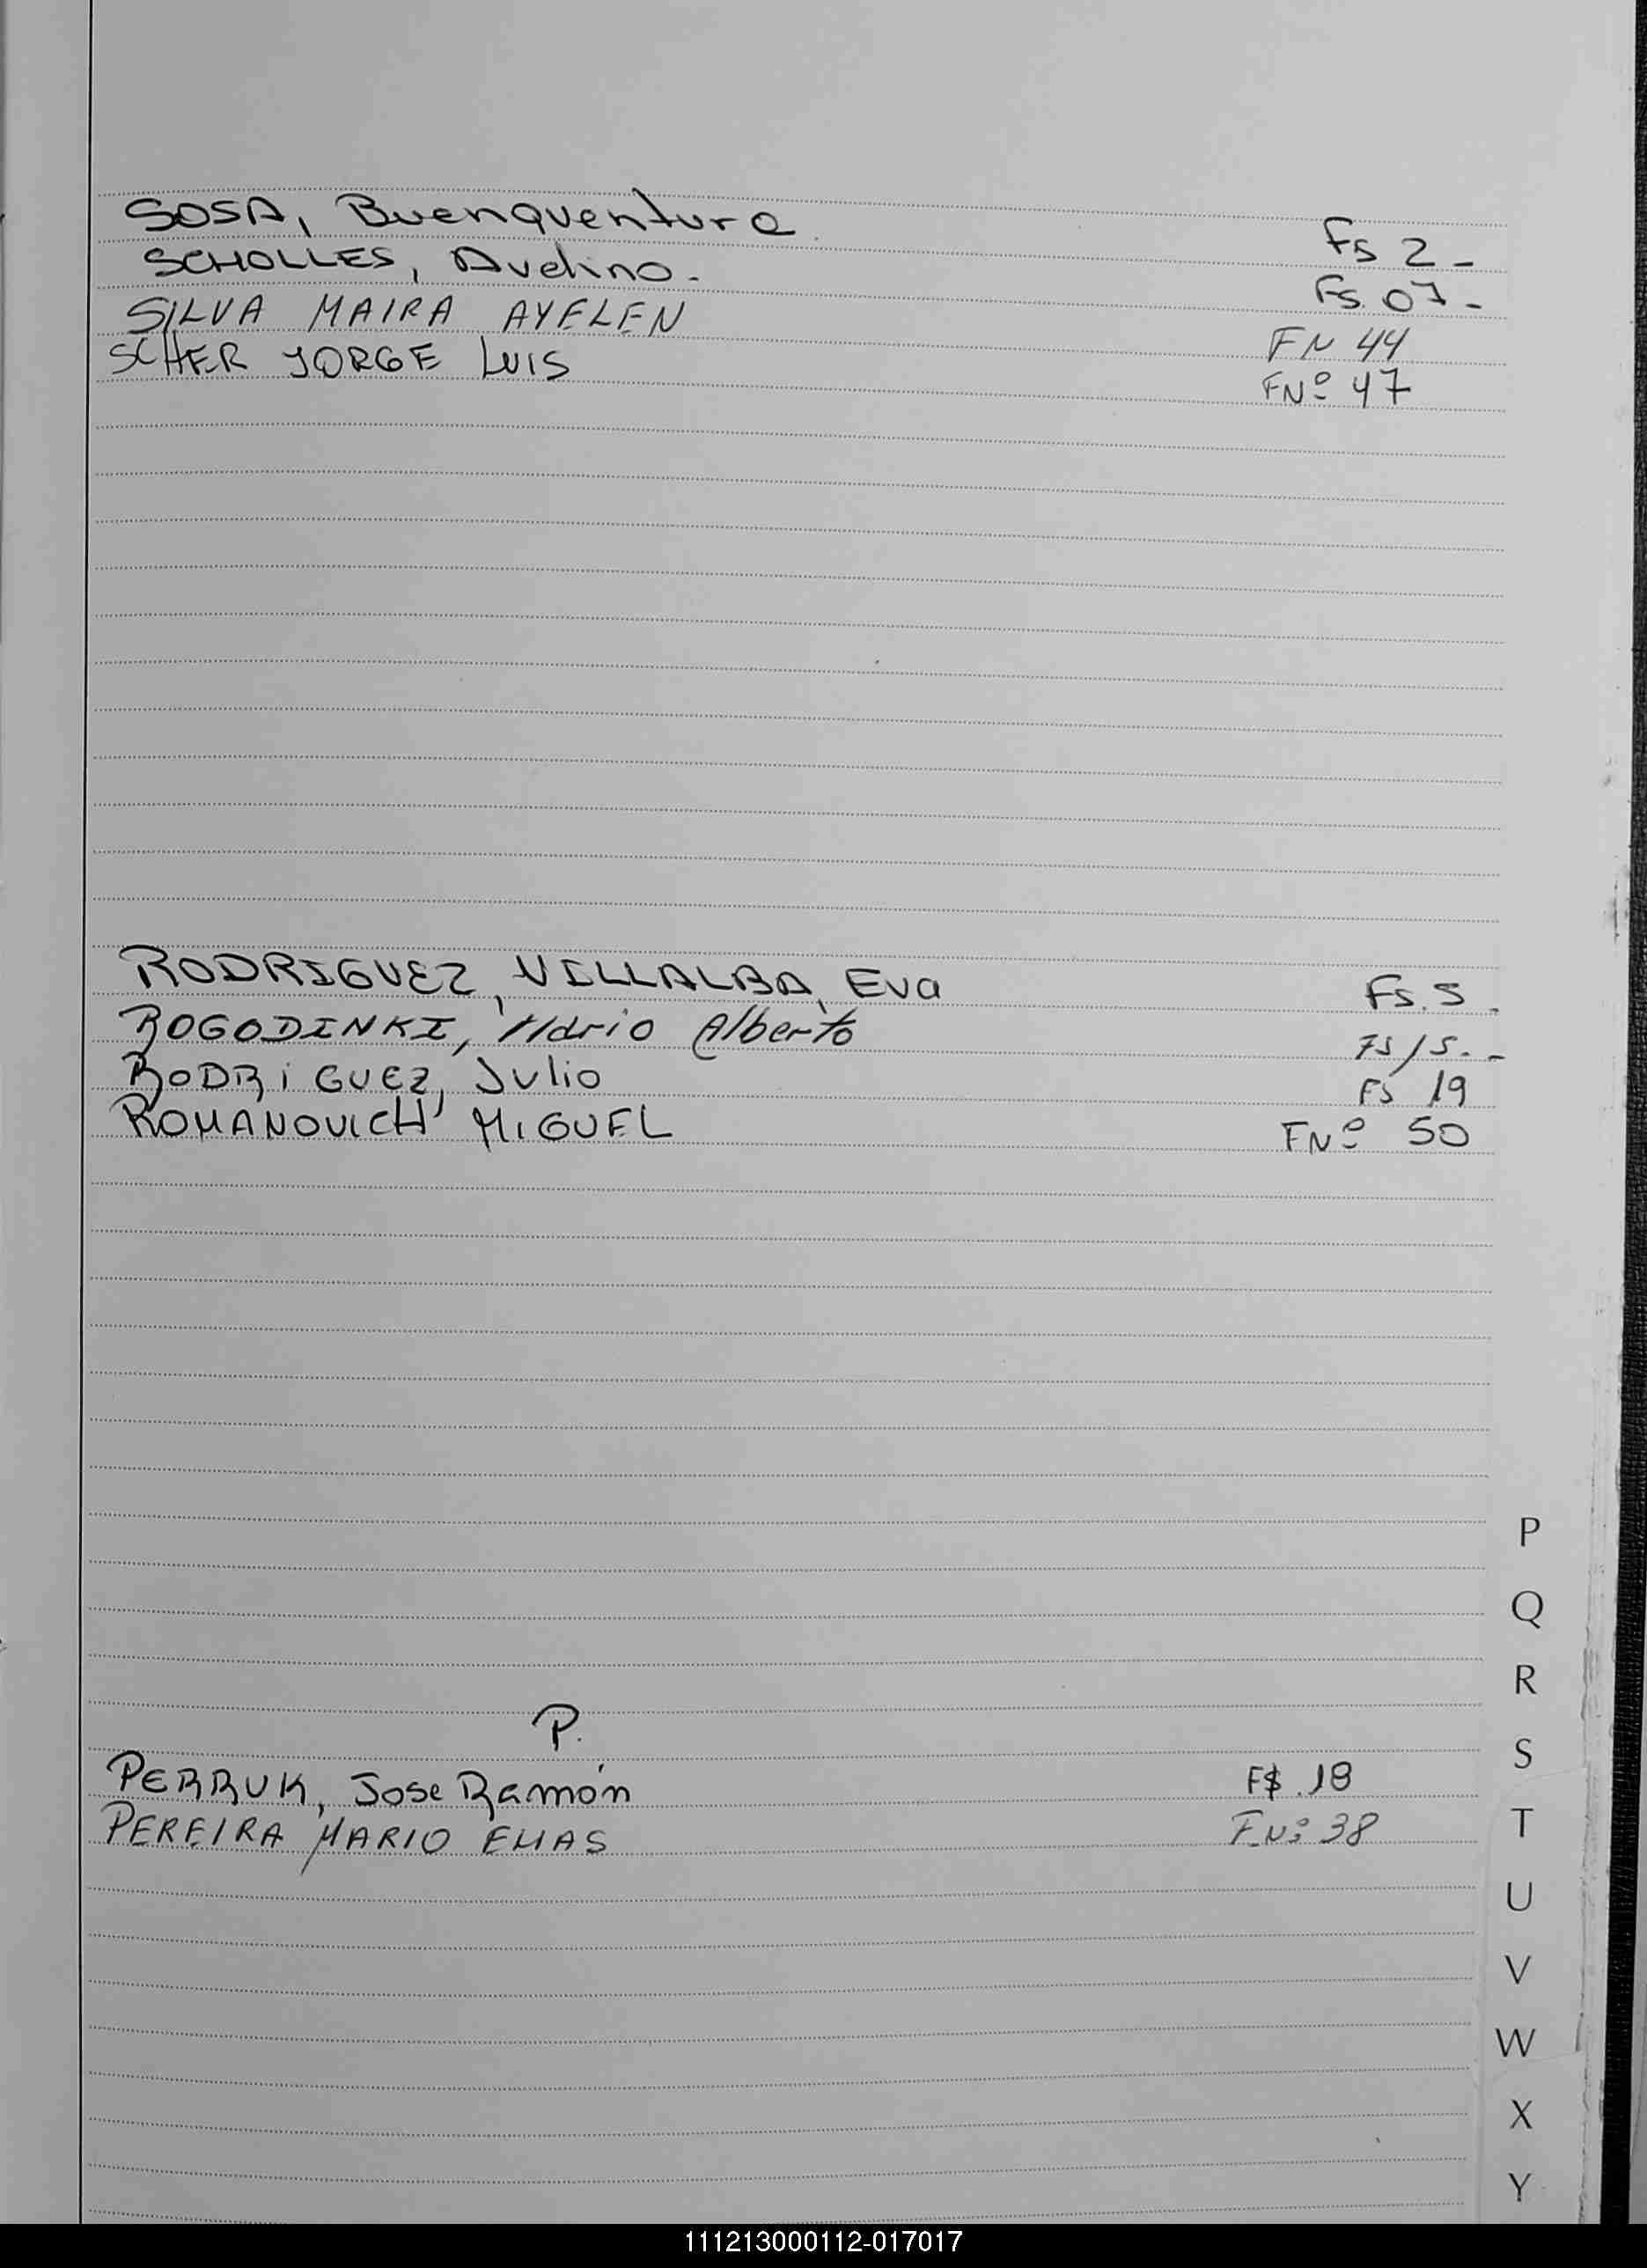 SOSA, Buenaventura Fs 2-
SCHOLLES, Avelino. Fs. 07-
SILVA MAIRA AYELEN FN 44
SCHER JORGE LUIS FNº 47
RODRIGUEZ, VILLALBA, Eva Fs. 5.
ROGODINKI, Mario Alberto Fs/5.-
RODRiGUEZ, Julio Fs 19
ROMANOVICH MIGUEL FNº 50
P.
PERRUK, Jose Ramón F$.18
PEREIRA MARIO ELIAS F.Nº 38
P
Q
R
S
T
U
V
W
X
Y
111213000112-017017